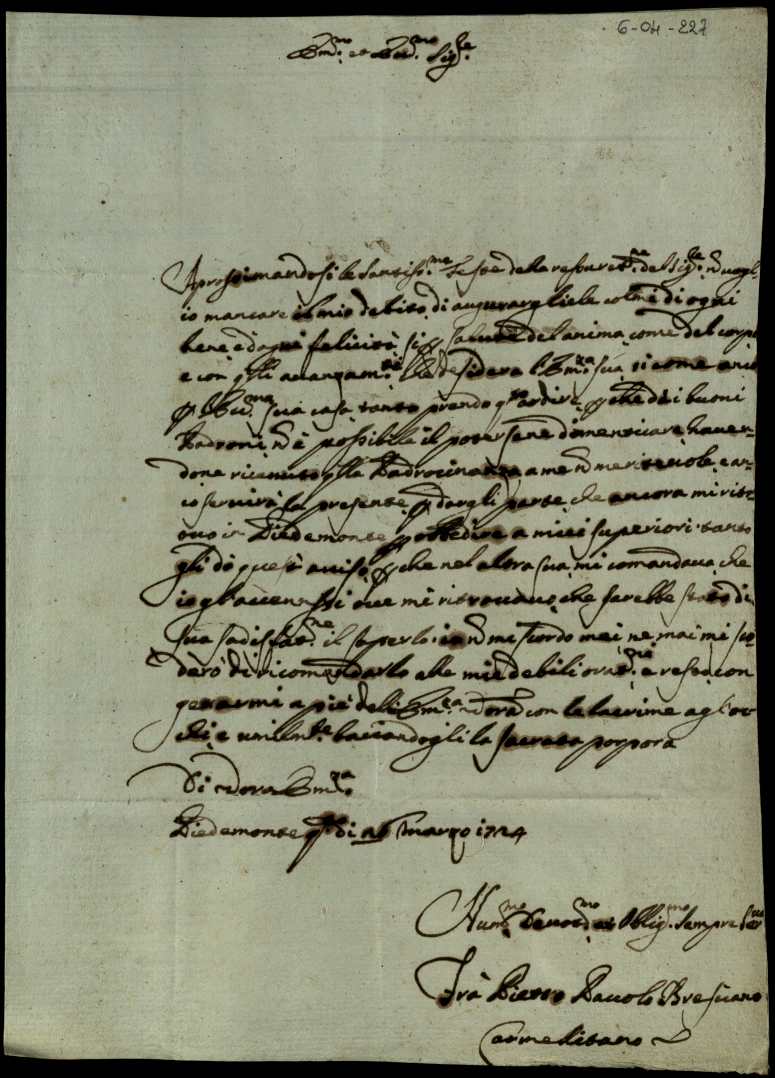 6-04-227
Em.mo et Rev.mo Sig.re
Aprossimandosi le santiss.me feste della resouret.ne del Sig.re ñ vogl-
io mancare il mio debito di augurargliele colme di ogni
bene, e d'ogni felicità, si p salute del anima, come del corpo
e con q.lli avanzam.ti che desidera l'Em.za sua, si come anco
p l'Ecc.ma sua casa, tanto prendo q.to ardire, p che de i buoni
Padroni ñ è possibile il potersene dimenticare, haven-
done ricevuto q.lla Padrocinanza a me ñ meritevole, e an-
co servirà la presente p dargli parte, che ancora mi rit-
ovo in Piedemonte p obbedire a miei superiori, tanto
gli dò questo aviso, p che nel altra sua mi comandava, che
io gl'accenassi ove mi ritrovavo, che sarebbe stato di
sua sadisfat.ne il saperlo, io ñ mi scordo mai, ne mai mi sco-
derò di ricomandarlo alle mie debili orat.ni e resta con
gettarmi a pie dell'Em.za Vora con le lacrime agl'oc-
chi, e umilm.te bacciandogli la sacrata porpora
Di Vora Em.za
Piedemonte q.to di 26 marzo 1724
Hum.mo Devot.mo et Oblig.mo sempre Ser.re
Frà Pietro Pauolo Bresciano
Carmelitano